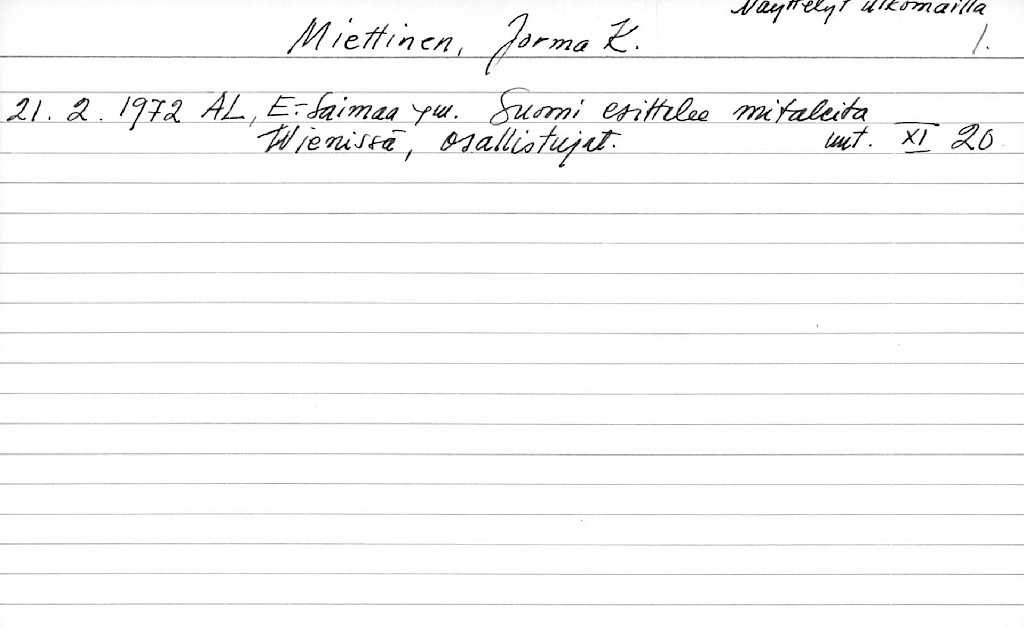 Näyttelyt ulkomailla
Miettinen, Jorma K. 1.
21. 2. 1972 AL, E-Saimaa ym. Suomi esittelee mitaleita
Wienissä, osallistujat. uut. XI 20